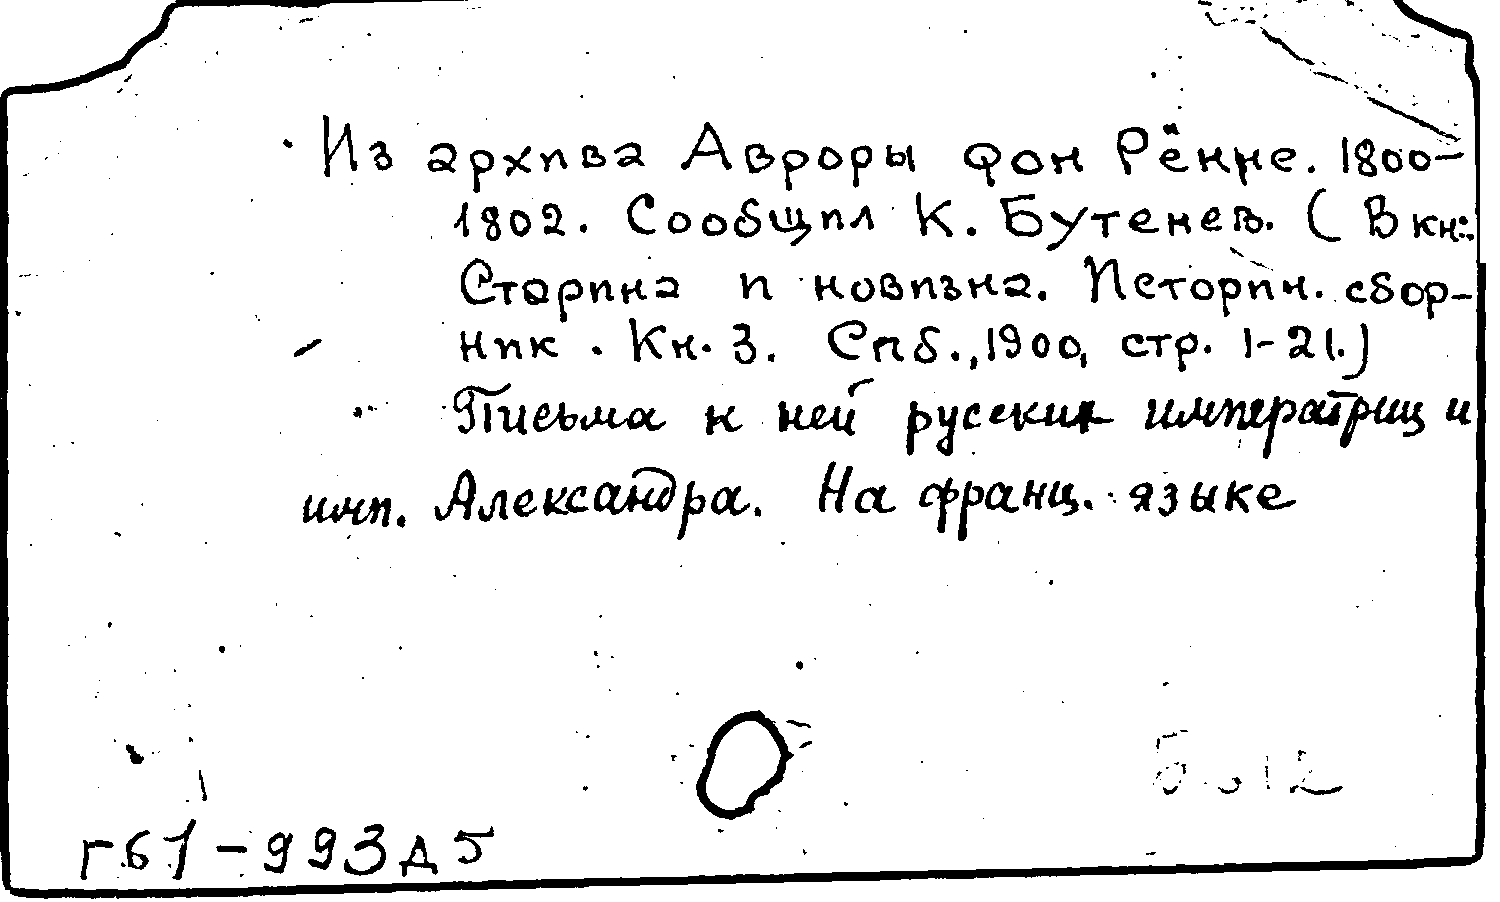 Из архива Авроры фон Рённе. 1800-
1802. Сообщил К. Бутенев. (В кн.:
Старина и новизна. Историч. сбор-
ник. Кн. 3. Спб., 1900, стр. 1-21.)
Письма к ней русских императриц и
имп. Александра. На франц. языке
г61-993д5